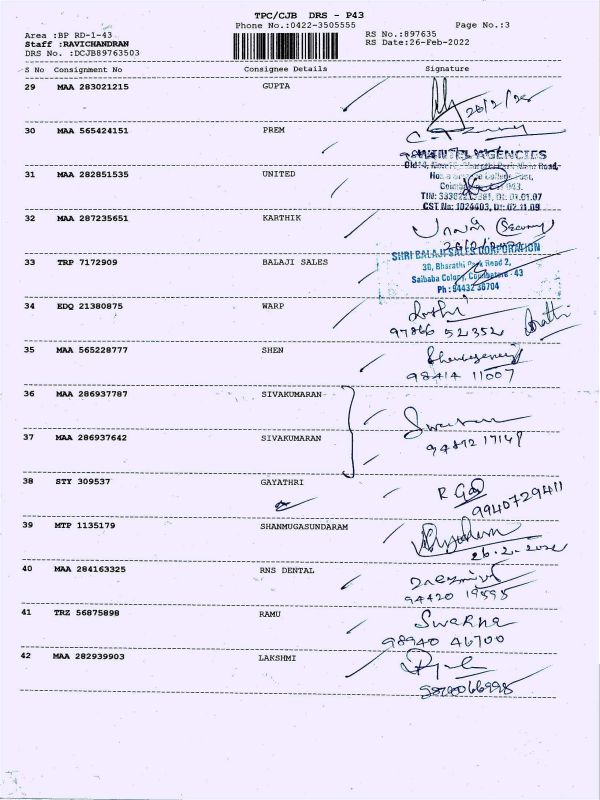 TPC/CJB DRS - P43
Phone No.:0422-3505555
Page No.:3
Area :BP RD-1-43
RS No.:897635
Staff :RAVICHANDRAN
RS Date:26-Feb-2022
DRS No. :DCJB89763503
S No Consignment No Consignee Details Signature
29 MAA 283021215 GUPTA
26/2/22
30 MAA 565424151 PREM
31 MAA 282851535 UNITED
AGENCIES
Road,
College Post,
CST No: 1024403, Dt: 02.11.09
32 MAA 287235651 KARTHIK
33 TRP 7172909 BALAJI SALES
SHRI BALAJI SALES CORPORATION
30, Bharathi Park Road 2,
Saibaba Colony, Coimbatore - 43
Ph : 94432 38704
34 EDQ 21380875 WARP
97866 52352
35 MAA 565228777 SHEN
98414 11007
36 MAA 286937787 SIVAKUMARAN
37 MAA 286937642 SIVAKUMARAN
38 STY 309537 GAYATHRI
9940729411
39 MTP 1135179 SHANMUGASUNDARAM
26.2.2022
40 MAA 284163325 RNS DENTAL
94420 19595
41 TRZ 56875898 RAMU
Swarna
98940 46700
42 MAA 282939903 LAKSHMI